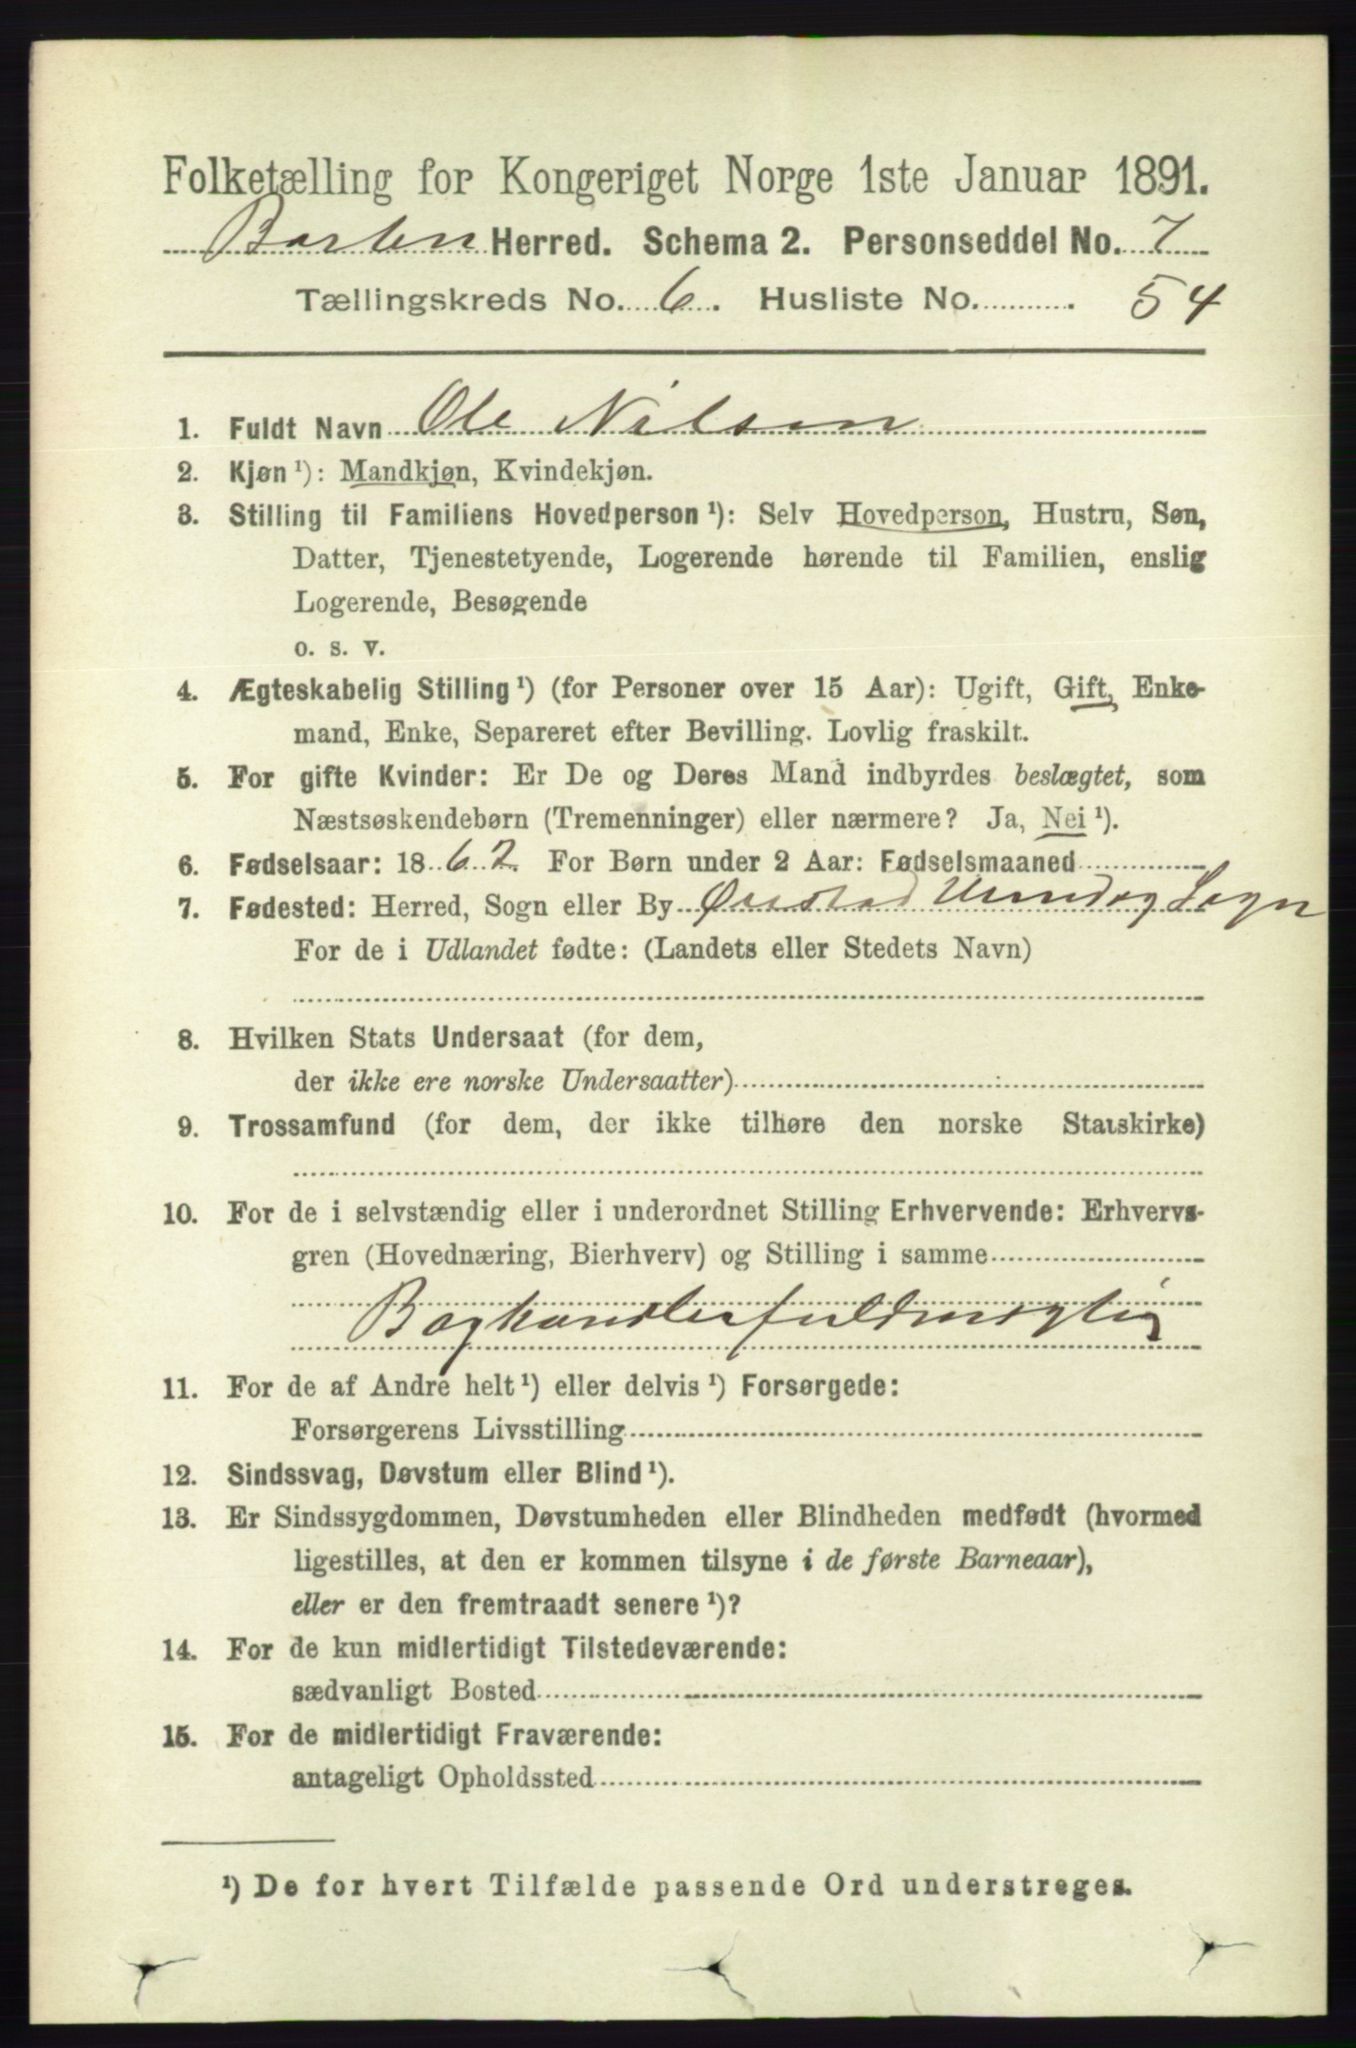 Folketælling for Kongeriget Norge 1ste Januar 1891.
Herred. Schema 2. Personseddel No. 7
Tællingskreds No. 6. Husliste No. . 54
1. Fuldt Navn Ole Nilsen
2. Kjøn ¹): Mandkjøn, Kvindekjøn.
3. Stilling til Familiens Hovedperson ¹): Selv Hovedperson, Hustru, Søn,
Datter, Tjenestetyende, Logerende hørende til Familien, enslig
Logerende, Besøgende
o. s. v.
4. Ægteskabelig Stilling ¹) (for Personer over 15 Aar): Ugift, Gift, Enke-
mand, Enke, Separeret efter Bevilling. Lovlig fraskilt.
5. For gifte Kvinder: Er De og Deres Mand indbyrdes beslægtet, som
Næstsøskendebørn (Tremenninger) eller nærmere? Ja, Nei ¹).
6. Fødselsaar: 1862 For Børn under 2 Aar: Fødselsmaaned
7. Fødested: Herred, Sogn eller By Sogn
For de i Udlandet fødte: (Landets eller Stedets Navn)
8. Hvilken Stats Undersaat (for dem,
der ikke ere norske Undersaatter)
9. Trossamfund (for dem, der ikke tilhøre den norske Statskirke)
10. For de i selvstændig eller i underordnet Stilling Erhvervende: Erhvervs-
gren (Hovednæring, Bierhverv) og Stilling i samme
11. For de af Andre helt ¹) eller delvis ¹) Forsørgede:
Forsørgerens Livsstilling
12. Sindssvag, Døvstum eller Blind ¹).
13. Er Sindssygdommen, Døvstumheden eller Blindheden medfødt (hvormed
ligestilles, at den er kommen tilsyne i de første Barneaar),
eller er den fremtraadt senere ¹)?
14. For de kun midlertidigt Tilstedeværende:
sædvanligt Bosted
15. For de midlertidigt Fraværende:
antageligt Opholdssted
¹) De for hvert Tilfælde passende Ord understreges.